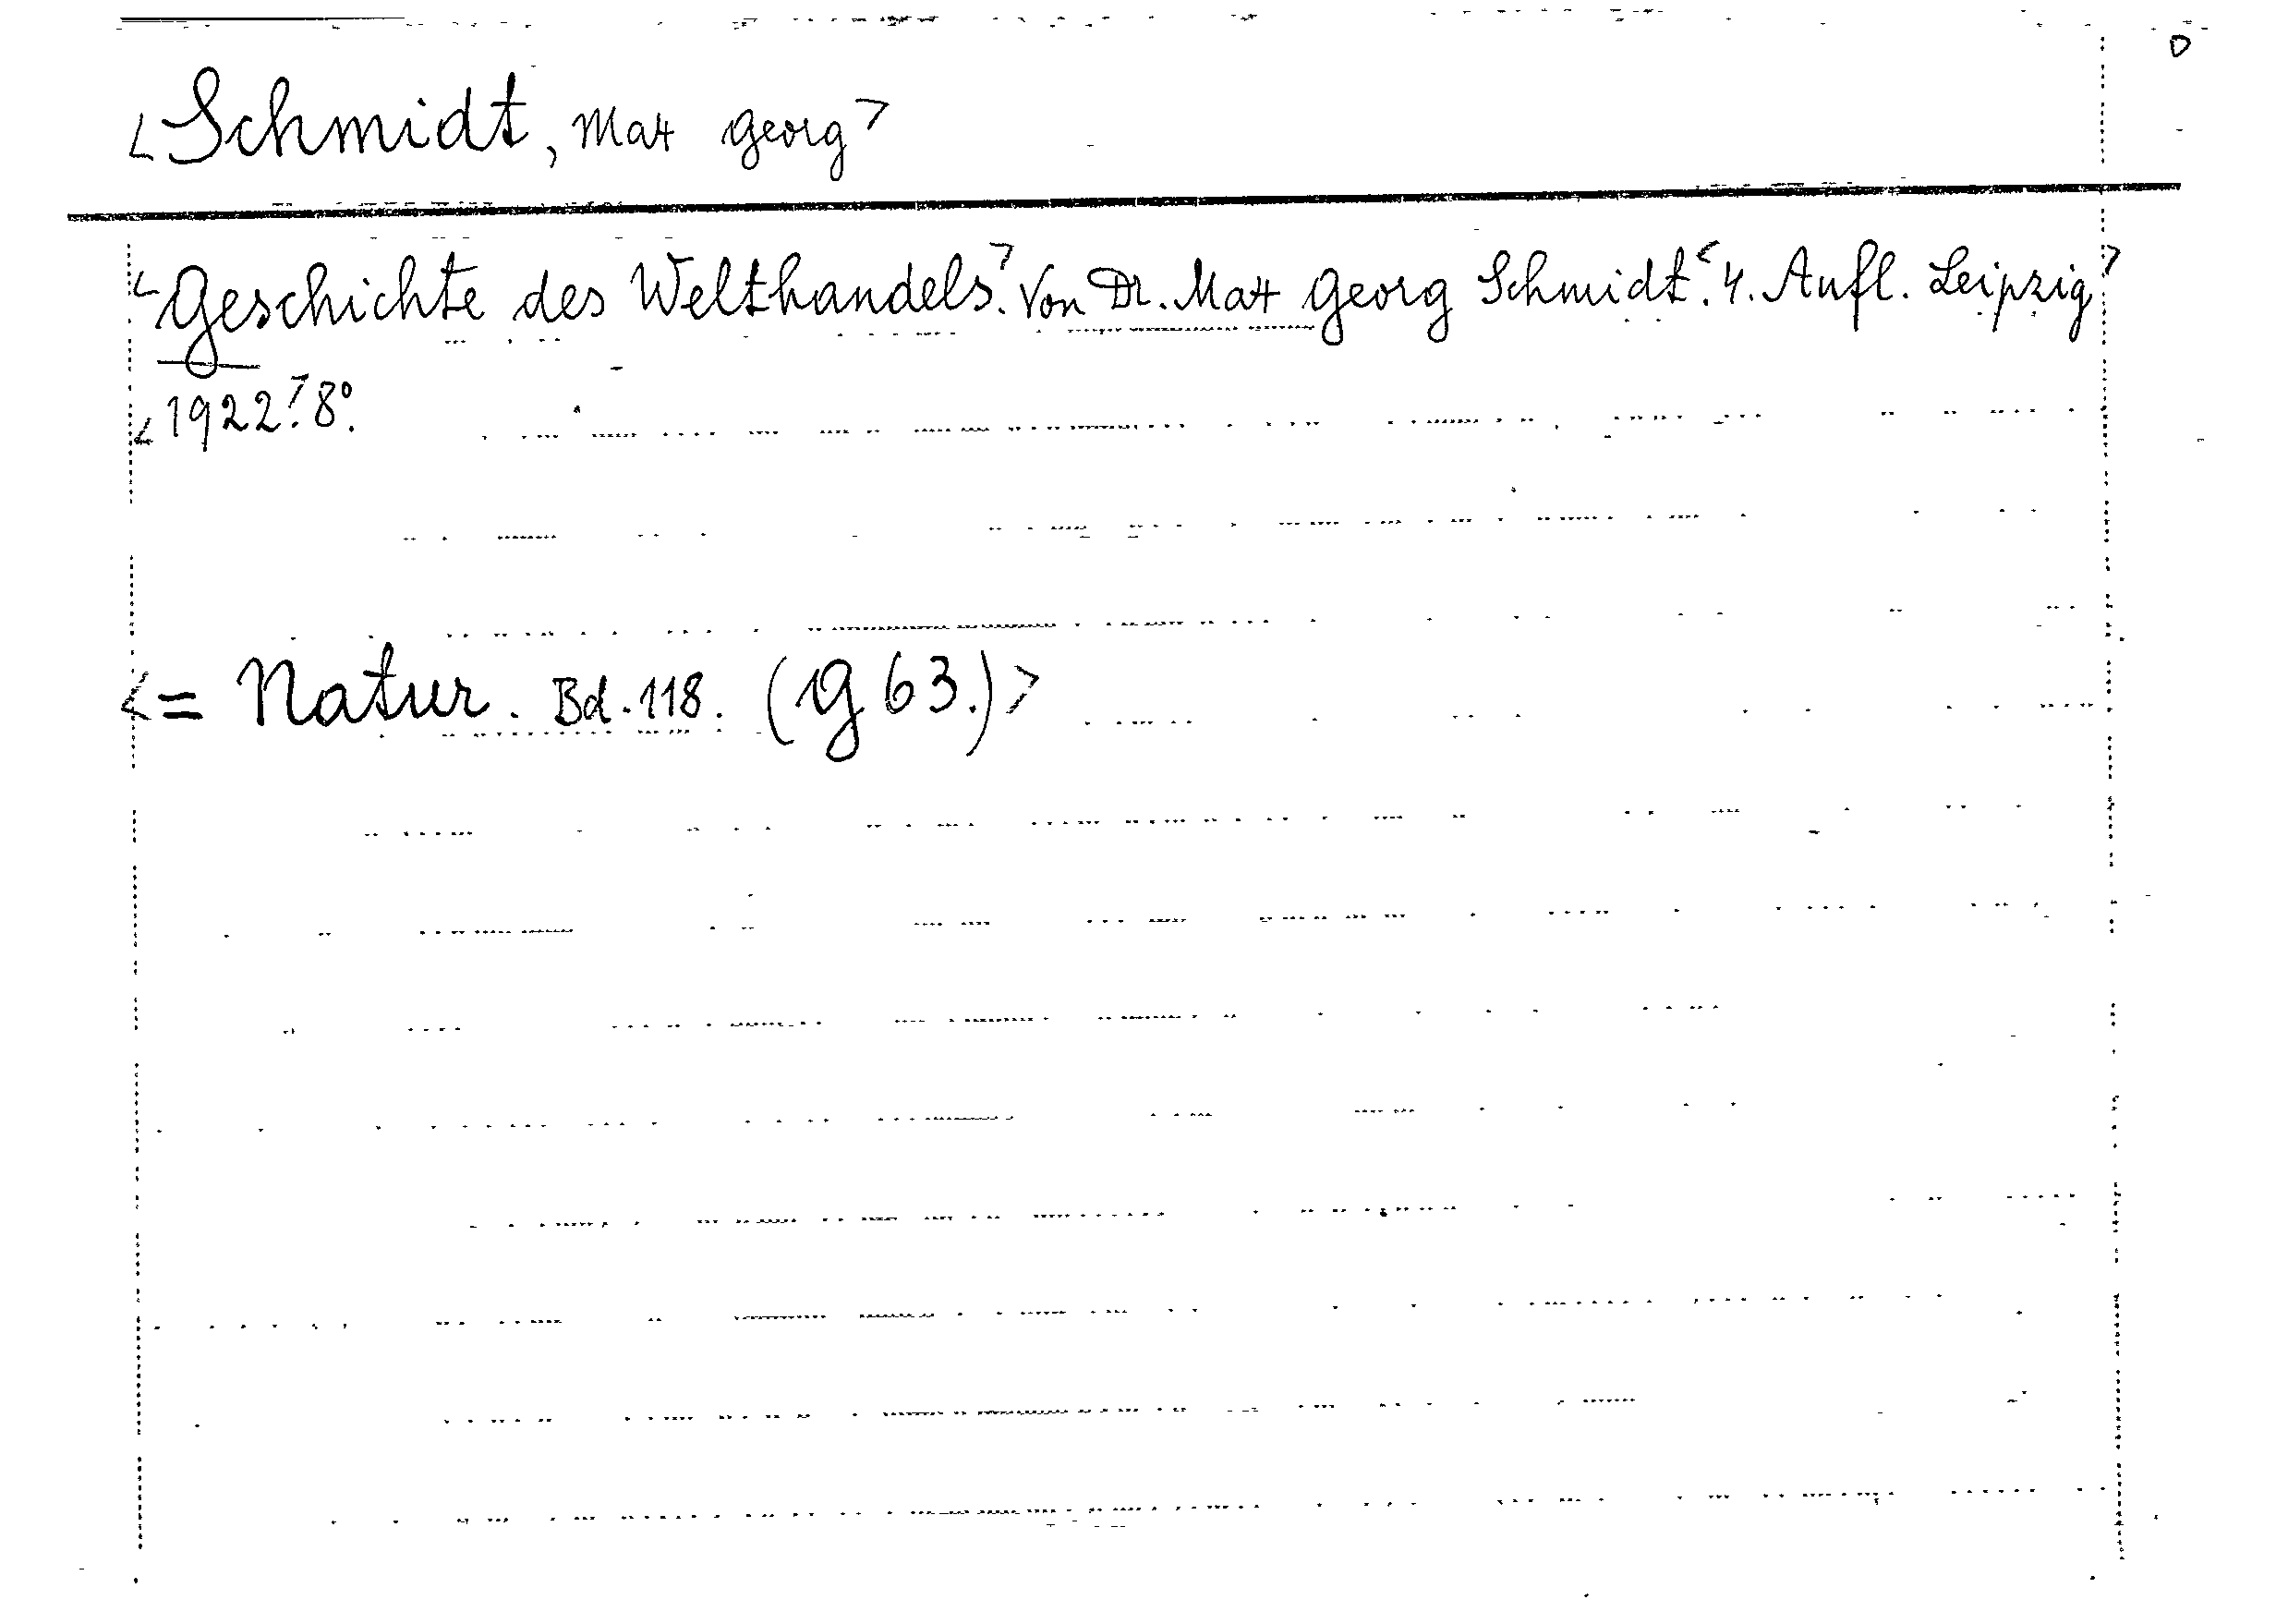 <Schmidt, Max Georg>
<Geschichte des Welthandels.> Von Dr. Max Georg Schmidt.< 4. Aufl. Leipzig>
<1922.> 8°.
<= Natur. Bd. 118. (G 63.)>